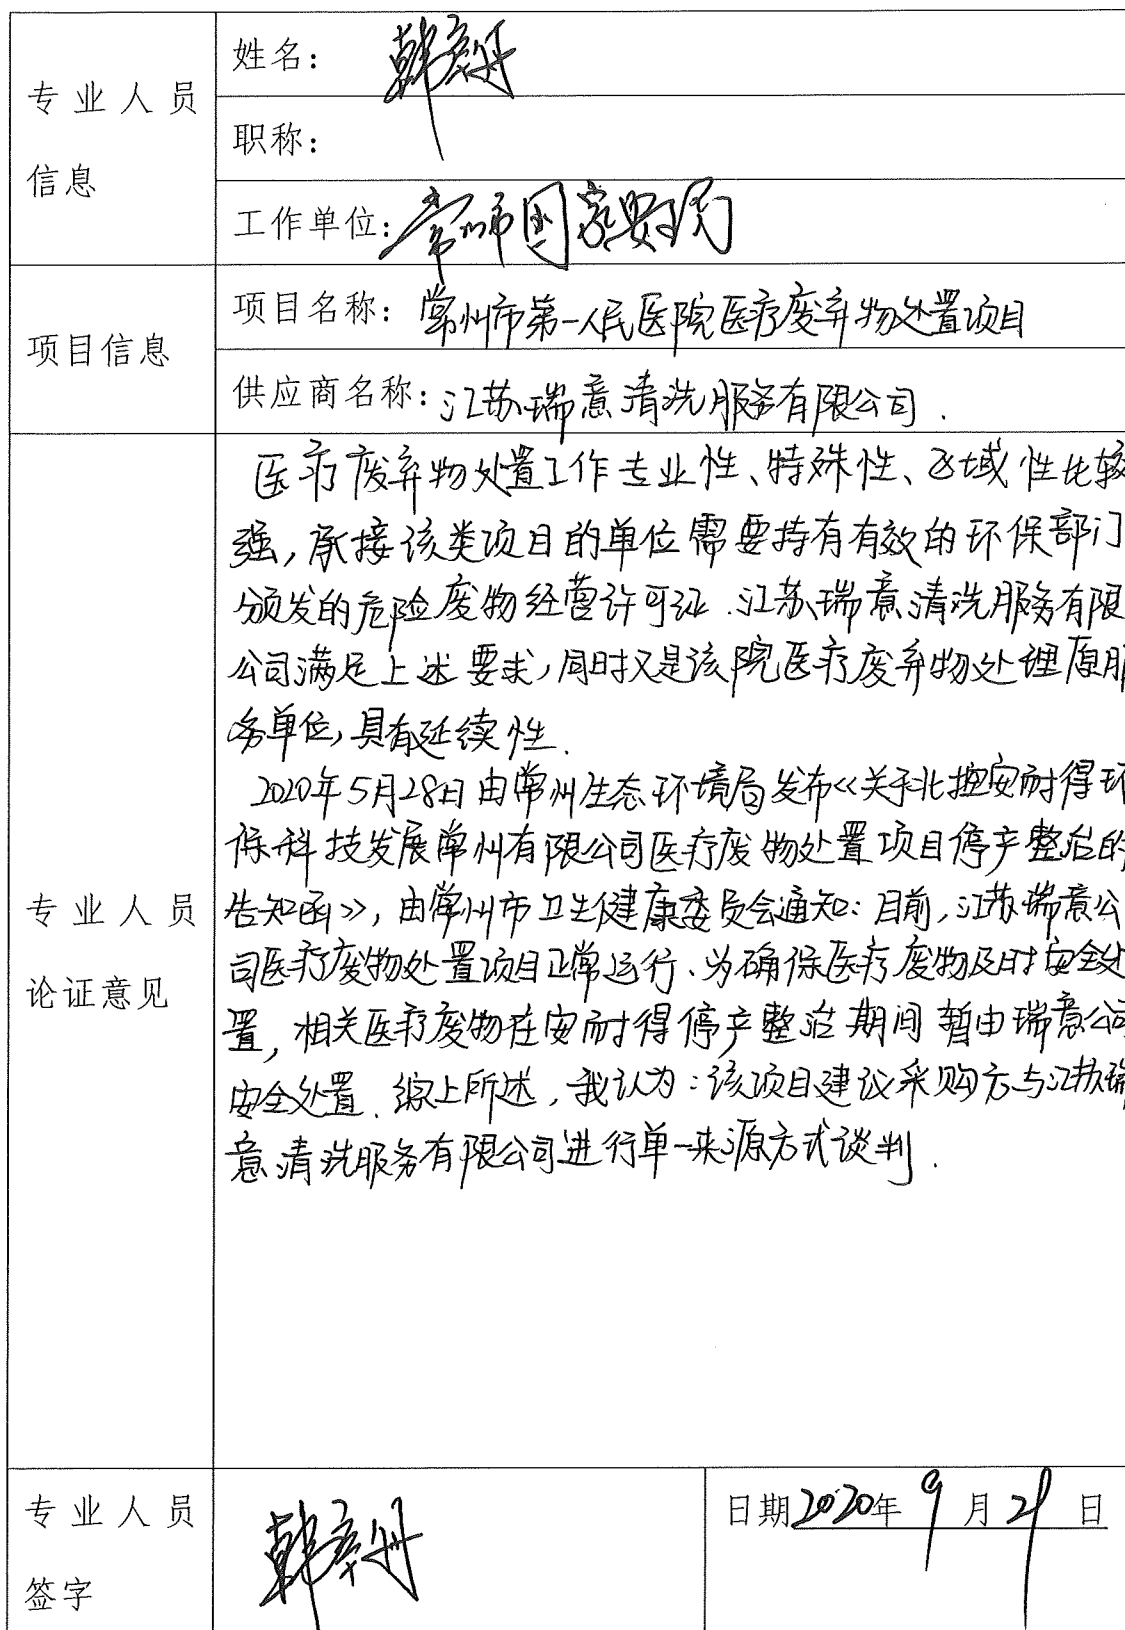 专业人员
信息
姓名：韩
职称：
工作单位：常州市国家
项目信息
项目名称：常州市第一人民医院医疗废弃物处置项目
供应商名称：江苏瑞意清洗服务有限公司.
专业人员
论证意见
医疗废弃物处置工作专业性、特殊性、区域性比较
强，承接该类项目的单位需要持有有效的环保部门
颁发的危险废物经营许可证.江苏瑞意清洗服务有限
公司满足上述要求，同时又是该院医疗废弃物处理原服
务单位，具有延续性.
2020年5月28日由常州生态环境局发布《关于北控安耐得环
保科技发展常州有限公司医疗废物处置项目停产整治的
告知函》，由常州市卫生健康委员会通知：目前，江苏瑞意公
司医疗废物处置项目正常运行、为确保医疗废物及时安全处
置，相关医疗废物在安耐得停产整治期间暂由瑞意公司
安全处置.综上所述，我认为：该项目建议采购方与江苏瑞
意清洗服务有限公司进行单一来源方式谈判.
专业人员
签字
韩
日期2020年9月21日